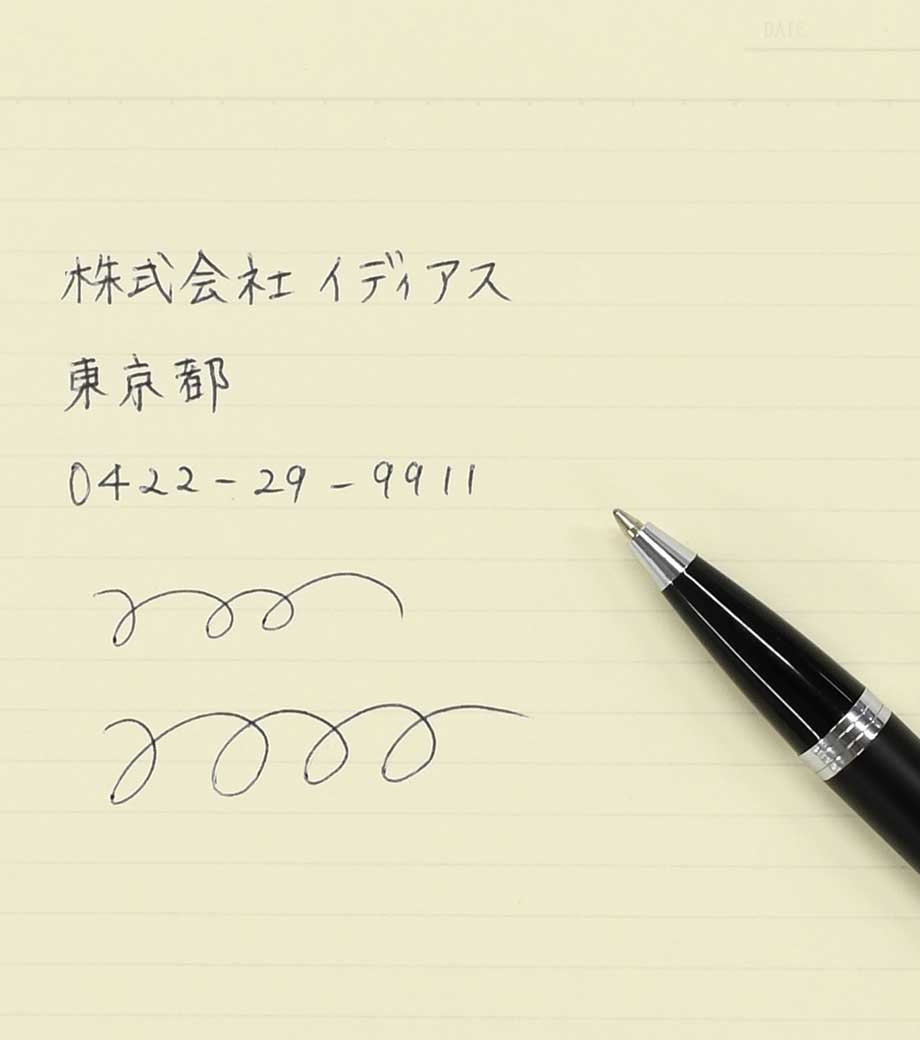 DATE
株式会社 イディアス
東京都
0422-29-9911